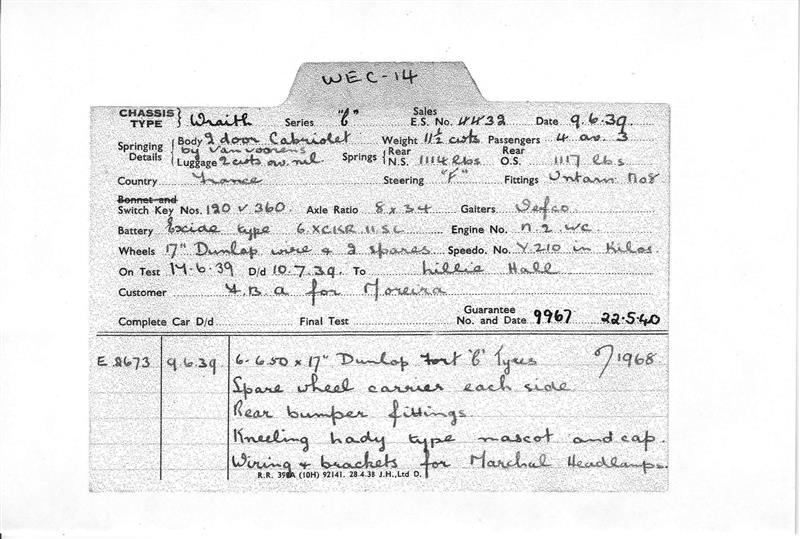 WEC-14
CHASSIS TYPE } Wraith Series "C" Sales E.S. No. 4432 Date 9.6.39.
Springing Details Body 2 door Cabriolet Weight 11½ cwts Passengers 4 av. 3
by Vanvoorens
Luggage 2 cwts av. nil. Springs Rear N.S. 1114 lbs Rear O.S. 1117 lbs
Country France Steering "F" Fittings No8
Bonnet and
Switch Key Nos. 120 V 360. Axle Ratio 8 x 34 Gaiters Wefco.
Battery Exide type 6.XCKR 11 SL Engine No. N.2.WC
Wheels 17" Dunlop wire & 2 spares Speedo. No. Y.210 in Kilos.
On Test 17.6.39 D/d 10.7.39. To Lillie Hall
Customer F.B.A. for Moreira
Complete Car D/d Final Test Guarantee No. and Date 9967 22.5.40
E 2673 9.6.39 6-6.50 x 17" Dunlop Fort 'C' Tyres /1968
Spare wheel carrier each side
Rear bumper fittings
Kneeling lady type mascot and cap.
Wiring & brackets for Marchal Headlamps.
R.R. 398A (10H) 92141. 28.4.38 J.H.,Ltd D.